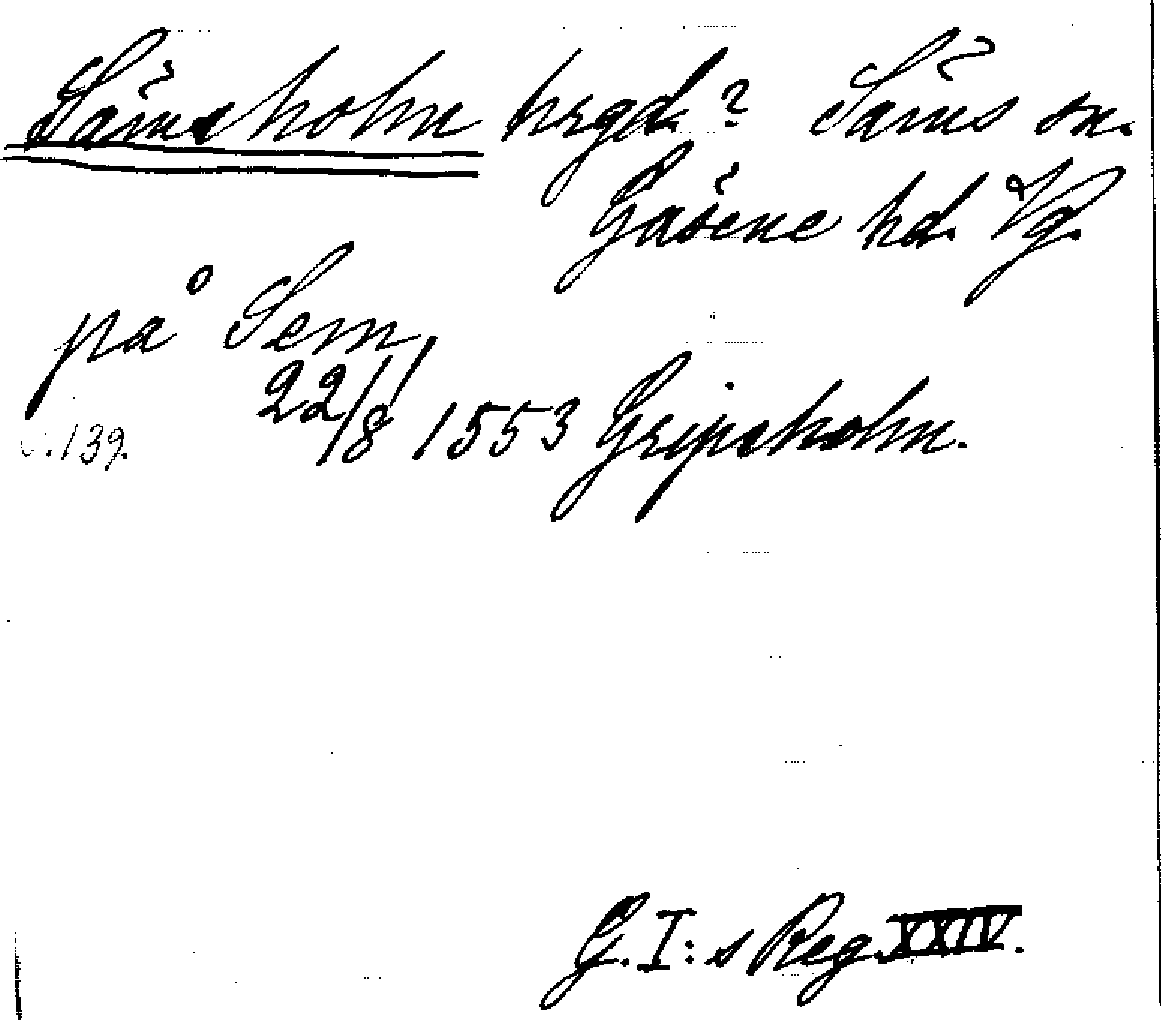 Sämsholm hrgd.? Säms sn.
Gäsene hd. Vg.
på Sem,
22/8 1553 Gripsholm.
s. 139.
G. I:s Reg. XXIV.